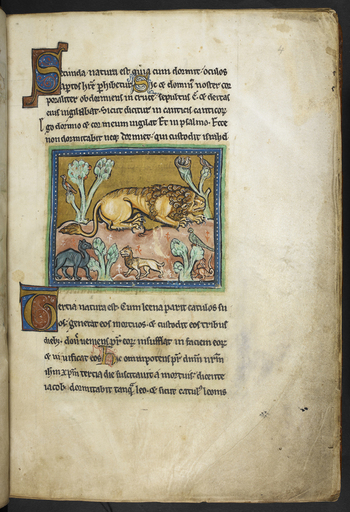 Secunda natura est quia cum dormit oculos
aptos hře phibetur. Sic & domin' noster cor
poraliter obdormiens in cruce sepultus ē. & deitas
eius uigilabat. Sicut dicitur in canticis canticor.
Ego dormio & cor meum uigilat. Et in psalmo. Ecce
non dormitabit neq; dormiet. qui custodit isrl.
Tertia natura est. Cum leena parit catulos su
os. generat eos mortuos. & custodit eos tribus
dieb;. donec ueniens pr̄ eor. insufflat in faciem eor.
& uiuificat eos. Sic omnipotens pr̄ dnm nrm
ihm xpm tertia die suscitauit a mortuis. dicente
iacob. dormitabit tanq̄ leo. & sicut catul' leonis